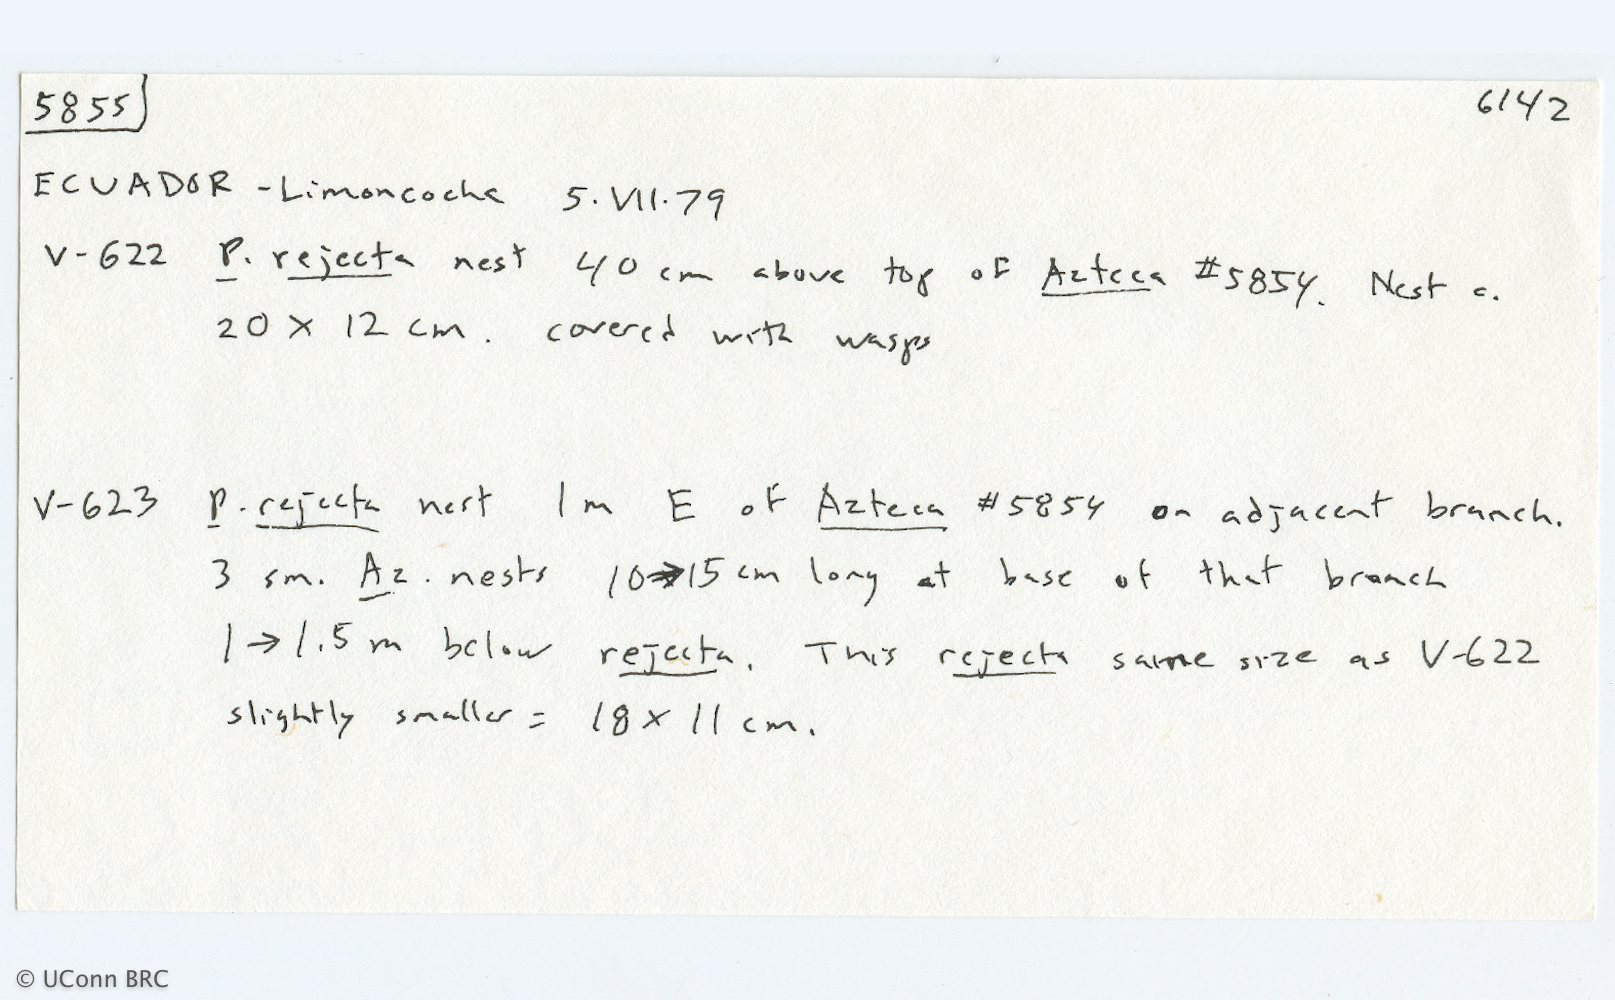 5855
6142
ECUADOR - Limoncocha 5.VII.79
V-622 P. rejecta nest 40 cm above top of Azteca #5854. Nest c.
20 x 12 cm. covered with wasps
V-623 P. rejecta nest 1m E of Azteca #5854 on adjacent branch.
3 sm. Az. nests 10→15 cm long at base of that branch
1→1.5 m below rejecta. This rejecta same size as V-622
slightly smaller = 18 x 11 cm.
© UConn BRC